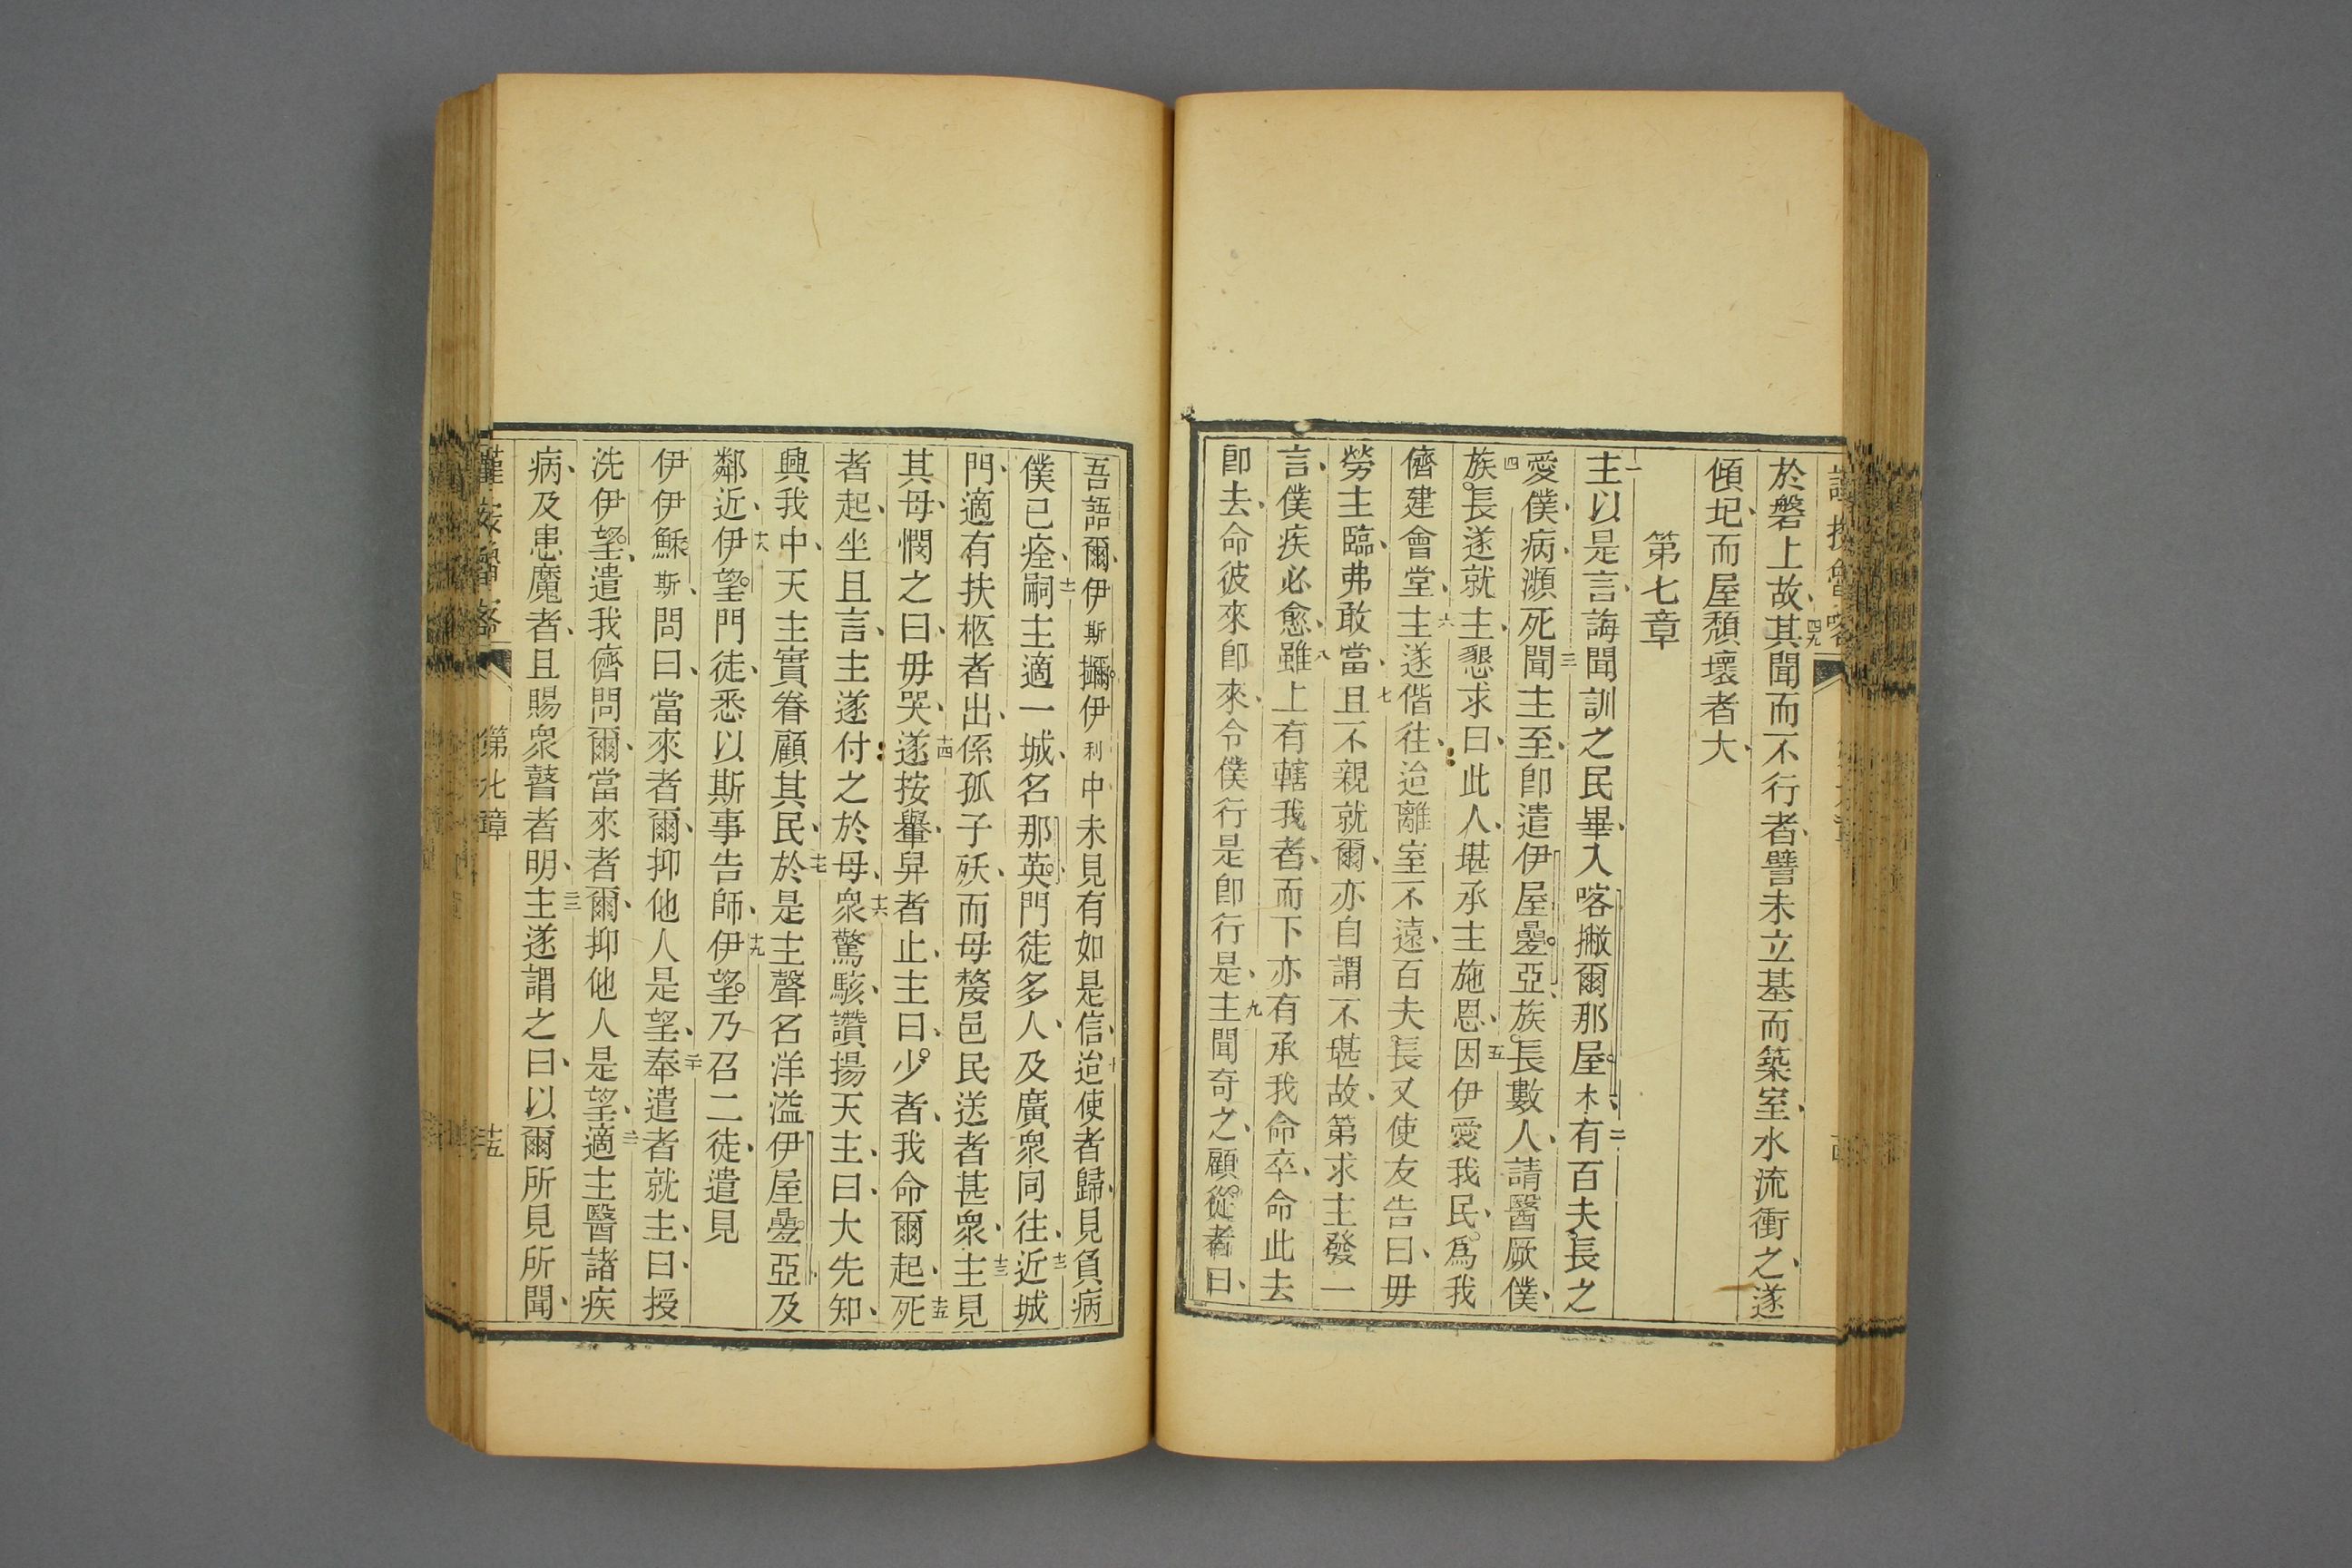 於磐上、故其聞而不行者、譬未立基而築室、水流衝之、遂
四九
傾圮、而屋頹壞者大、
第七章
一
主以是言、誨聞訓之民畢、入喀撇爾那屋木、有百夫長之
二
愛僕、病、瀕死、聞主至、卽遣伊屋疊亞族長數人、請醫厥僕、
三
族長遂就主、懇求曰、此人、堪承主施恩、因伊愛我民、爲我
四 五
儕建會堂、主遂偕往、迨離室不遠、百夫長又使友告曰、毋
六
勞主臨、弗敢當、且不親就爾、亦自謂不堪、故、第求主發一
七
言、僕疾必愈、雖上有轄我者、而下亦有承我命卒、命此去
八
卽去、命彼來卽來、令僕行是卽行是、主聞奇之、顧從者曰、
九
吾語爾、伊斯擟伊利中、未見有如是信、迨使者歸、見負病
十
僕已痊、嗣主適一城、名那英、門徒多人、及廣衆同往、近城
十一 十二
門、適有扶柩者出、係孤子殀、而母嫠、邑民送者甚衆、主見
十三
其母、憫之曰、毋哭、遂按轝、舁者止、主曰、少者、我命爾起、死
十四 十五
者起、坐且言、主遂付之於母、衆驚駭、讚揚天主、曰、大先知、
十六
興我中、天主實眷顧其民、於是主聲名洋溢伊屋疊亞、及
十七
鄰近、伊望門徒、悉以斯事告師、伊望乃召二徒、遣見
十八 十九
伊伊穌斯、問曰、當來者爾、抑他人是望、奉遣者就主、曰、授
二十
洗伊望、遣我儕問爾、當來者爾、抑他人是望、適主醫諸疾
二一
病、及患魔者、且賜衆瞽者明、主遂謂之曰、以爾所見所聞、
二二
第七章
十五